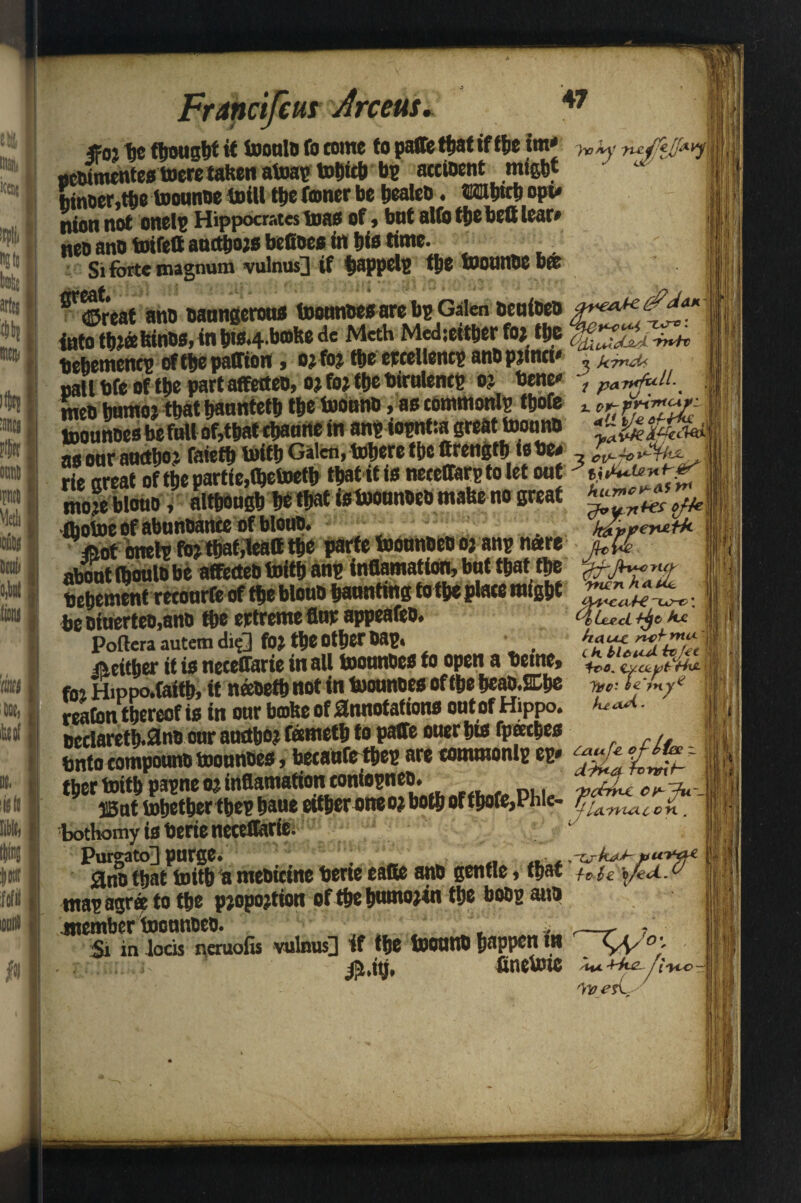 Franciscus Arceus. 47
For he thought it would so come to passe that if the im-
pedimentes were taken away which by accident might
hinder, the wounde will the sooner be healed. Which opi-
nion not onely Hippocrates was of, but also the best lear-
ned and wisest aucthors besides in his time.
Si forte magnum vulnus] if happely the wounde bee
great.
Great and daungerous woundes are by Galen deuided
into three kinds, in his.4.booke de Meth Med: either for the
vehemency of the passion, or for the excellency and princi-
pall vse of the part affected, or for the virulency or vene-
med humor that haunteth the wound, as commonly those
woundes be full of, that chaune in any ioynt: a great wound
as our aucthor saieth with Galen, where the strength is ve-
rie great of the partie, sheweth that it is necessary to let out
more bloud, although he that is wounded make no great
showe of abundance of bloud.
Not onely for that, least the parte wounded or any neere
about should be affected with any inflamation, but that the
vehement recourse of the bloud haunting to the place might
be diuerted, and the extreme flux appeased.
Postera autem die] for the other day.
Neither it is necessarie in all woundes to open a veine,
for Hippo. saith, it needeth not in woundes of the head. The
reason thereof is in our booke of Annotations out of Hippo.
declareth. And our aucthor seemeth to passe ouer his speeches
vnto compound woundes, because they are commonly ey-
ther with payne or inflamation conioyned.
But whether they haue either one or both of those, Phle-
bothomy is verie necessarie.
Purgato] purge.
And that with a medicine verie easie and gentle, that
may agree to the proportion of the humor in the body and
member wounded.
Si in locis neruosis vulnus] if the wound happen in
N.iij. sinewie
why necessary
greate & dan
gerous wo:
diuided into
3 kinds
1 painfull.
2. or primcip:
all vse of the
parte affected
3 or for the
virulent &
humor as in
ioyntes ofte
happeneth
flowe
great wo:
haue not mu
ch bloud to see
too. except the
wo: be in ye
head.
cause of bloo
wht purge
to be vsed.
wo:
in the sino
wes